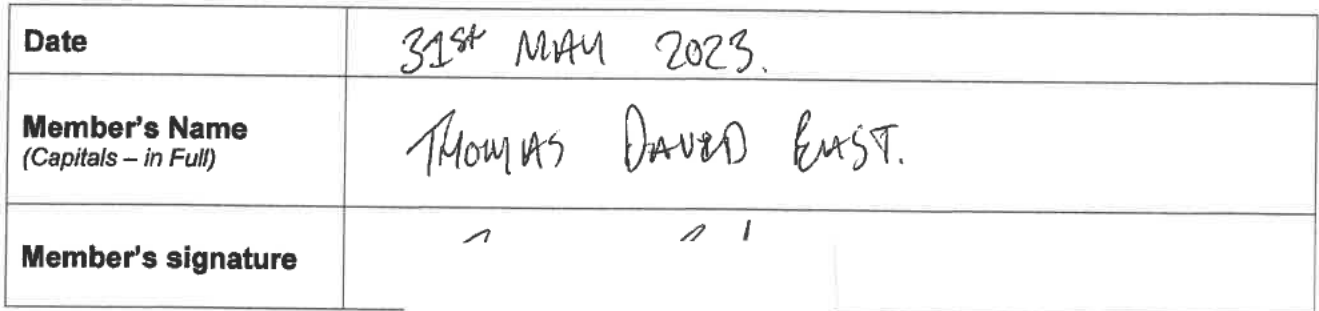 Date 31st MAY 2023.
Member's Name
(Capitals – in Full)
THOMAS DAVID EAST.
Member's signature